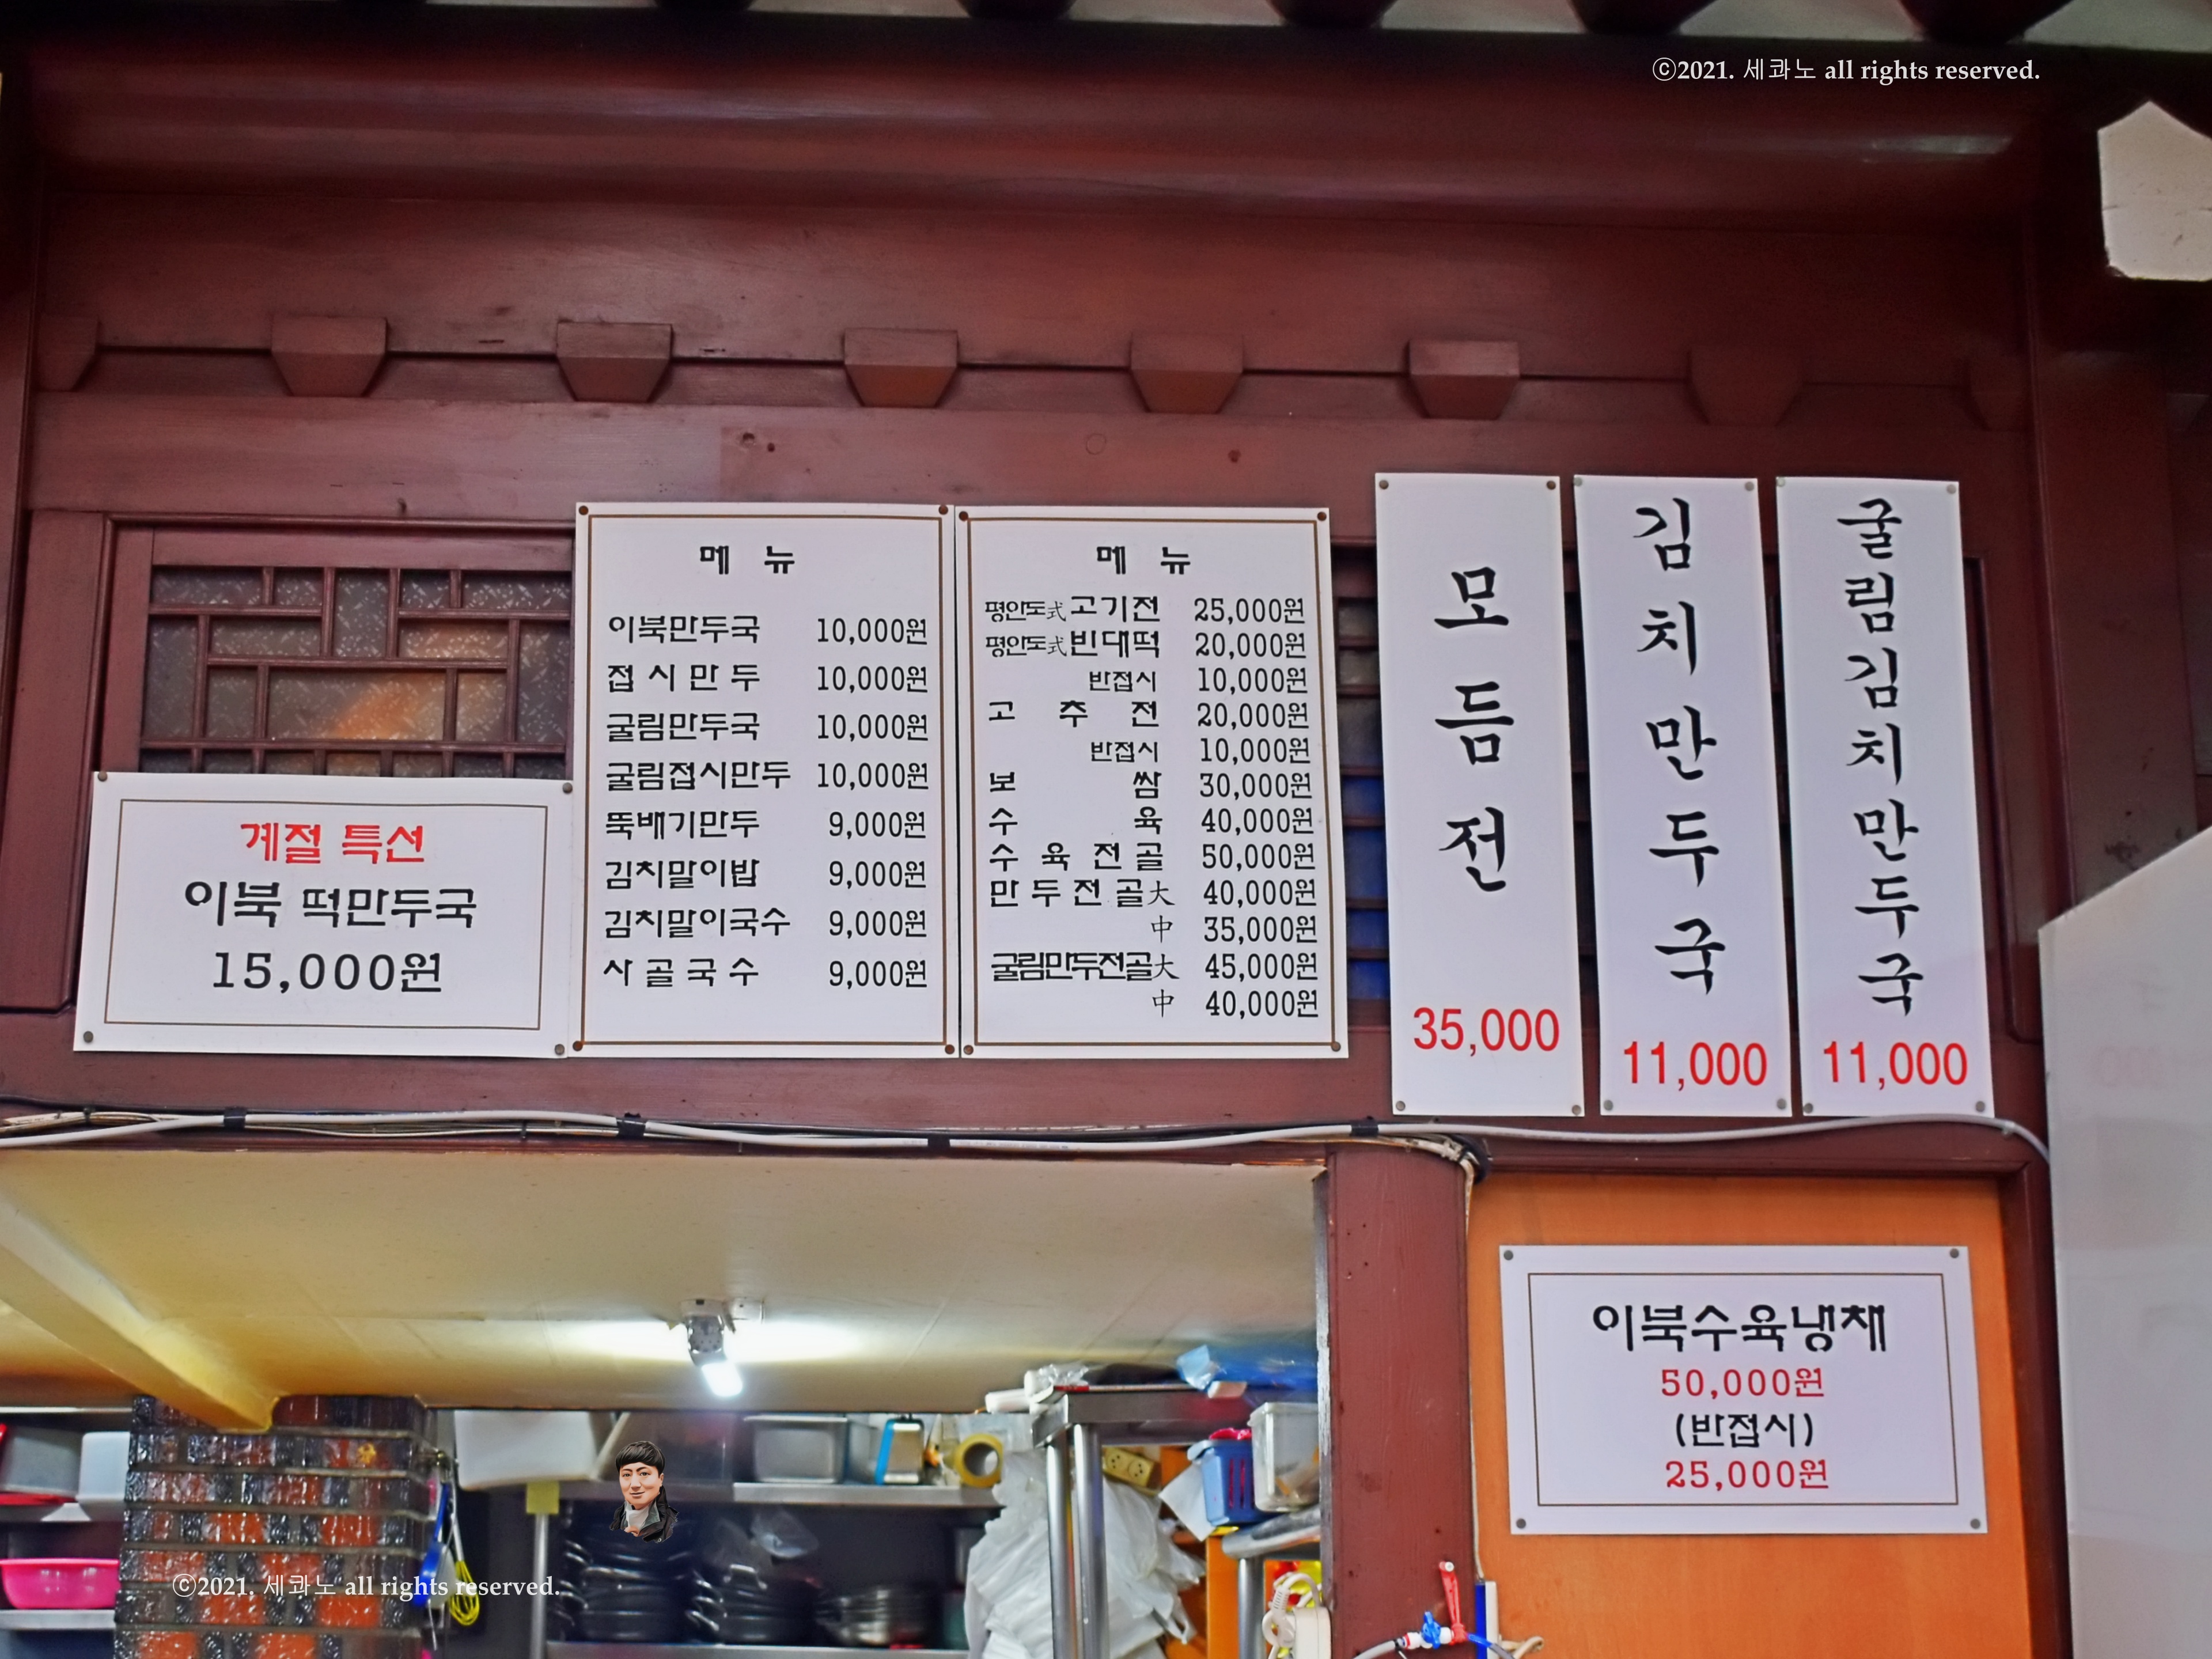 ⓒ2021. 세콰노 all rights reserved.
계절 특선
이북 떡만두국
15,000원
메 뉴
이북만두국 10,000원
접시만두 10,000원
굴림만두국 10,000원
굴림접시만두 10,000원
뚝배기만두 9,000원
김치말이밥 9,000원
김치말이국수 9,000원
사골국수 9,000원
메 뉴
평안도式고기전 25,000원
평안도式빈대떡 20,000원
반접시 10,000원
고추전 20,000원
반접시 10,000원
보쌈 30,000원
수육 40,000원
수육전골 50,000원
만두전골大 40,000원
中 35,000원
굴림만두전골大 45,000원
中 40,000원
모듬전
35,000
김치만두국
11,000
굴림김치만두국
11,000
이북수육냉채
50,000원
(반접시)
25,000원
ⓒ2021. 세콰노 all rights reserved.